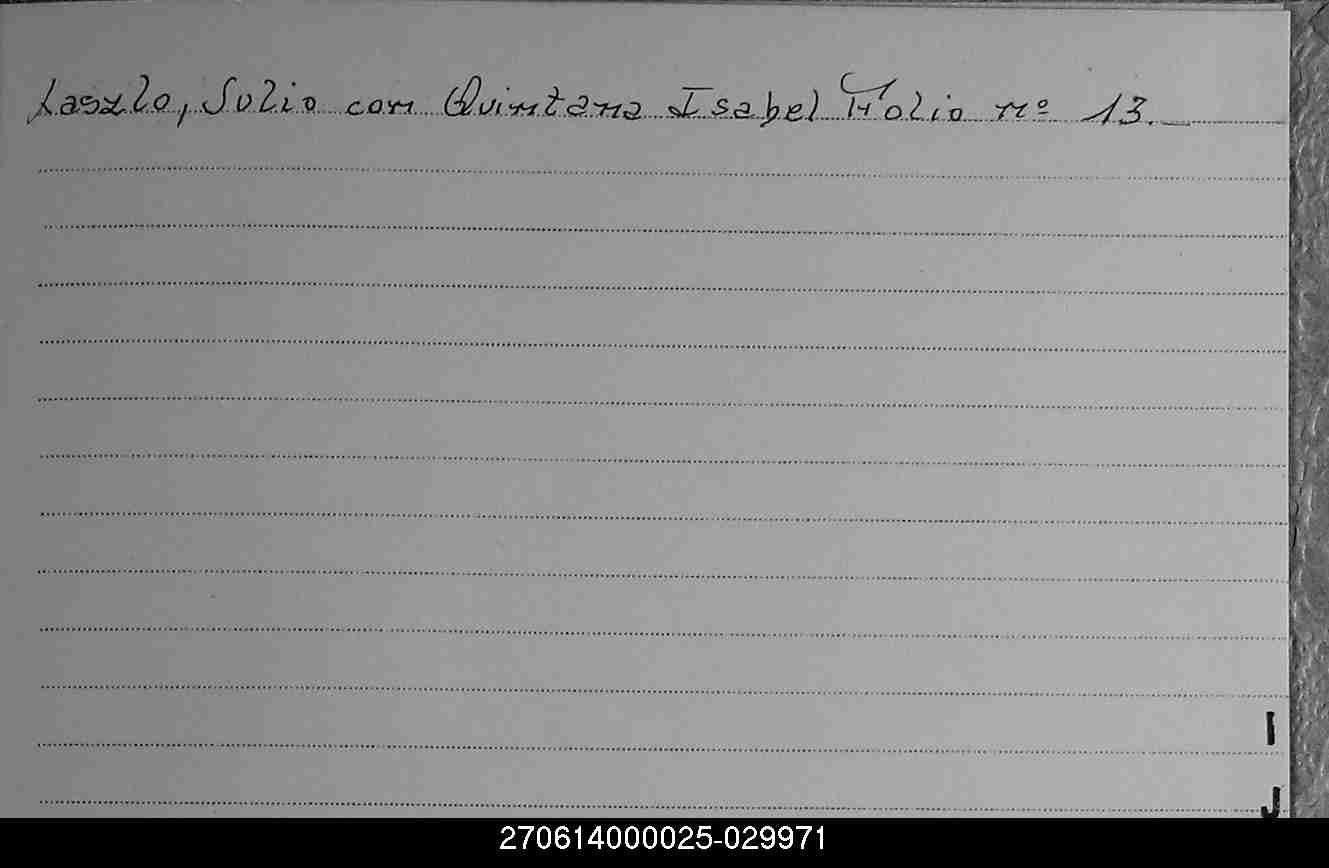 Laszlo, Julio con Quintana Isabel Folio nº 13.
I
J
270614000025-029971